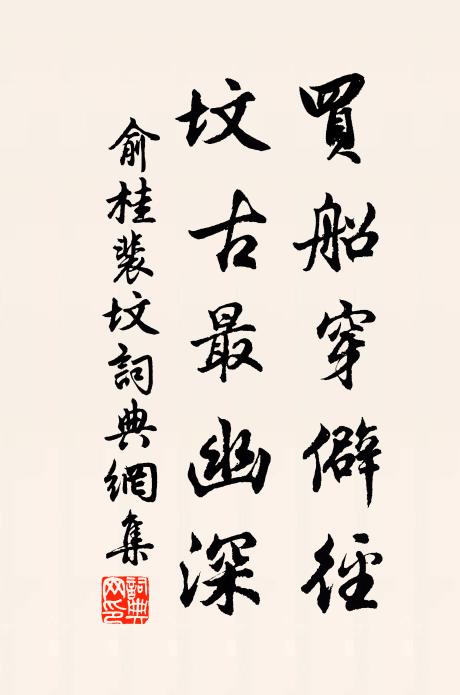 買船穿僻徑
坟古最幽深
俞桂裴坟詞典網集
詞典網印